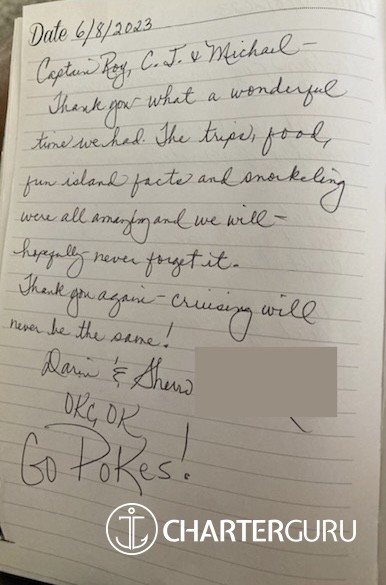 Date 6/8/2023
Captain Roy, C.J. & Michael -
Thank you - what a wonderful
time we had. The trips, food,
fun island facts and snorkeling
were all amazing and we will -
hopefully - never forget it.
Thank you again - cruising will
never be the same!
&
OKC, OK
Go Pokes!
CHARTERGURU